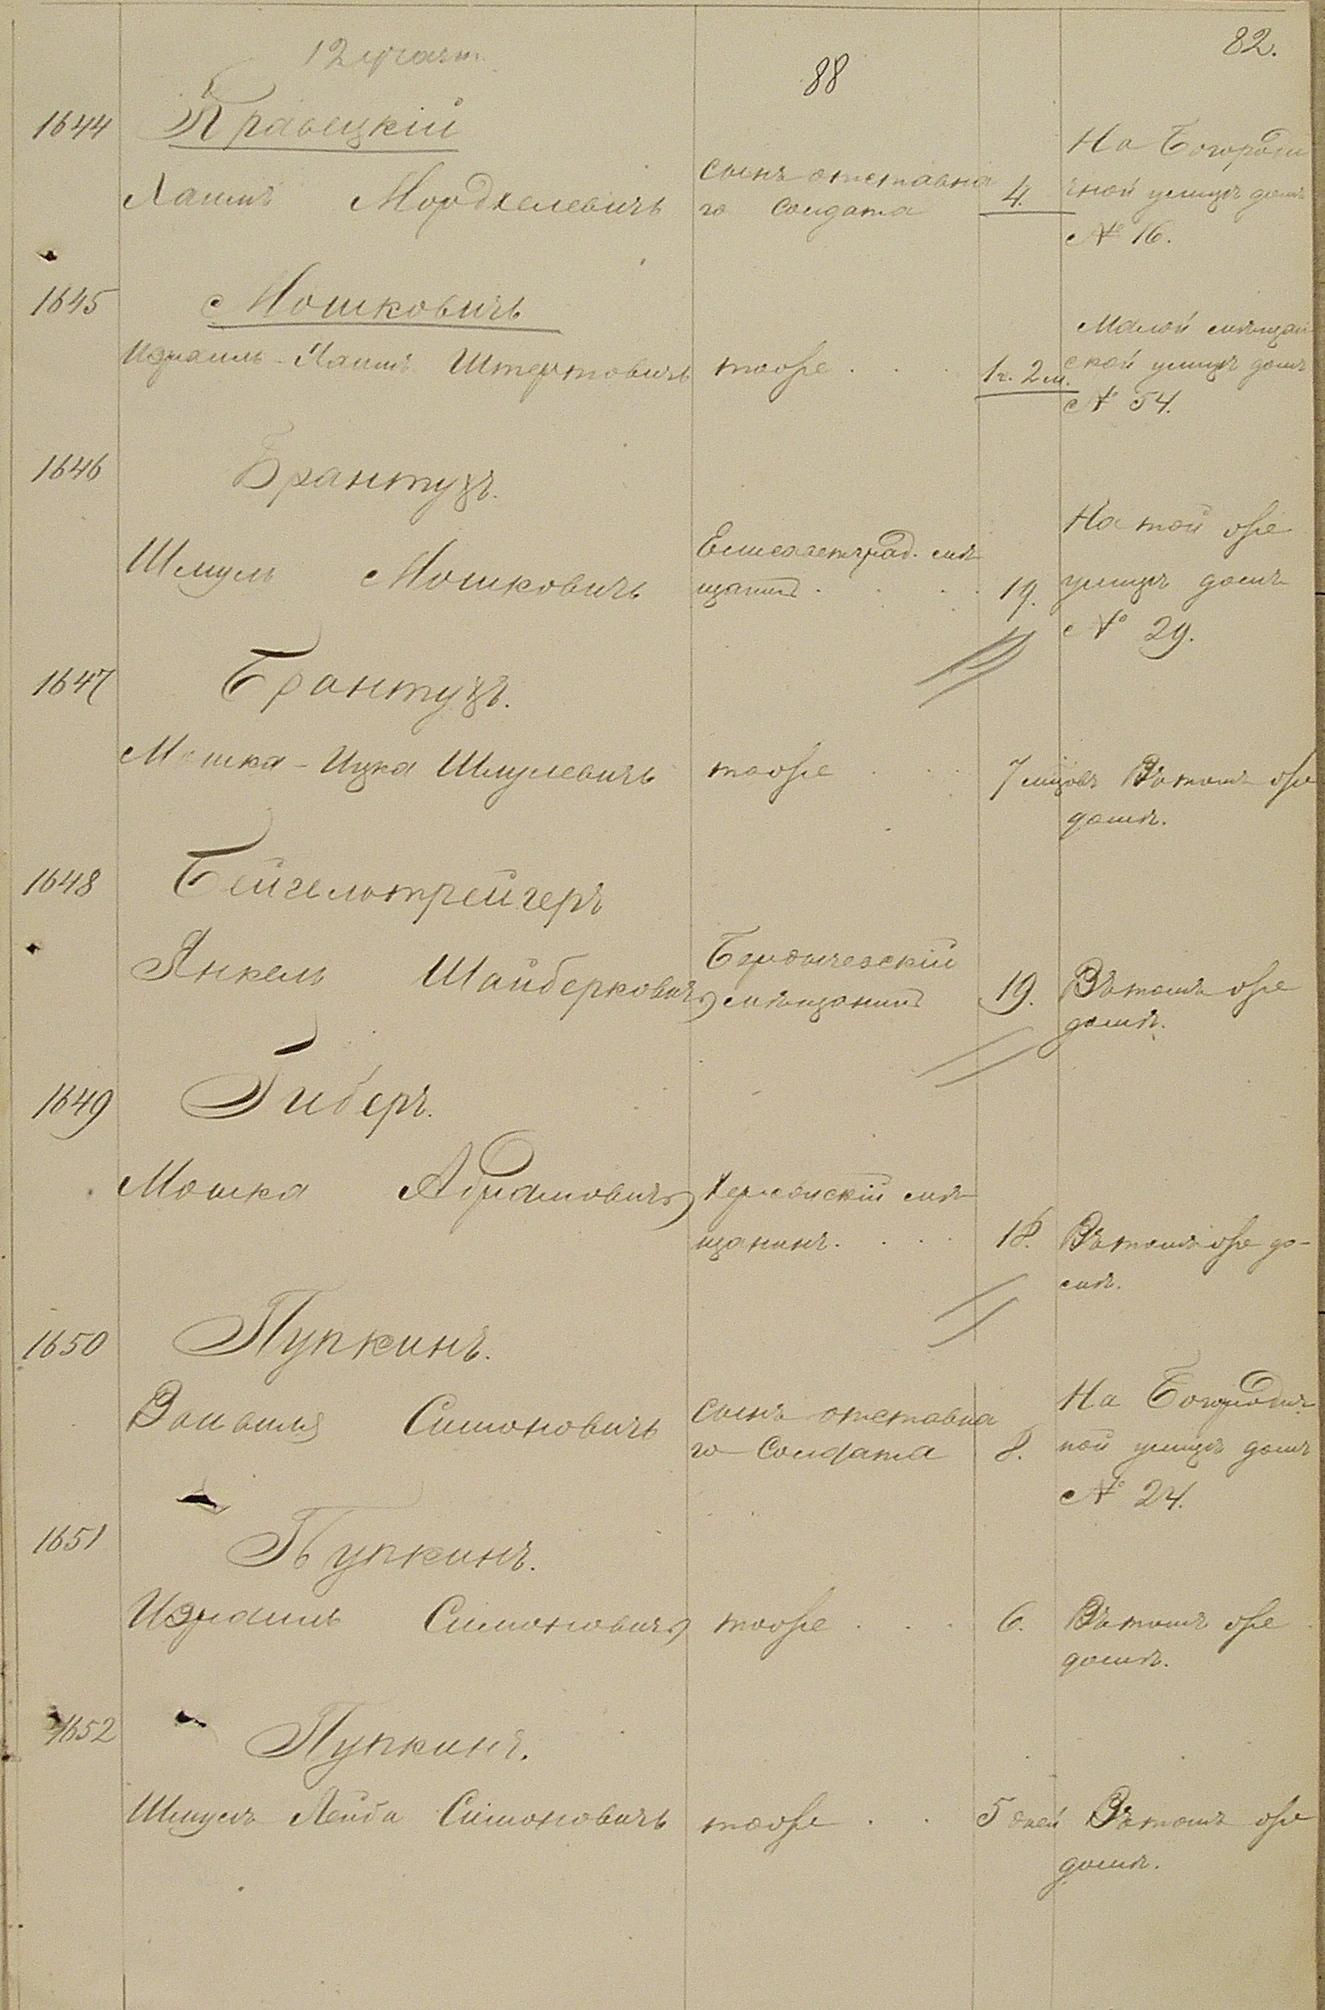 12 участ.
88
82.
1644 Кравецкій
Хаимъ Мордхелевичъ
сынъ отставна
го солдата
4.
На Богороди
чной улицѣ домъ
№ 16.
1645 Мошковичъ
Израиль-Хаимъ
тоже . . .
1 г. 2 м.
Малой мѣщан
ской улицѣ домъ
№ 54.
1646 Брантузъ.
Шмуль Мошковичъ
Елисаветград. мѣ
щанинъ . . . .
19.
На той же
улицѣ домъ
№ 29.
1647 Брантузъ.
Мошка-Ицка Шмулевичъ
тоже . . .
7 мѣцовъ
Въ томъ же
домѣ.
1648 Бейгельтрейгеръ
Янкель Шайберковичъ
Бердичевскій
мѣщанинъ
19.
Въ томъ же
домѣ.
1649 Гиберъ.
Мошка Абрамовичъ
Херсонскій мѣ
щанинъ . . . .
18.
Въ томъ же до-
мѣ.
1650 Пупкинъ.
Симоновичъ
сынъ отставна
го солдата
8.
На Богородич
ной улицѣ домъ
№ 24.
1651 Пупкинъ.
Израиль Симоновичъ
тоже . . .
6.
Въ томъ же
домѣ.
1652 Пупкинъ.
Шмуль Лейба Симоновичъ
тоже . .
5 дней
Въ томъ же
домѣ.